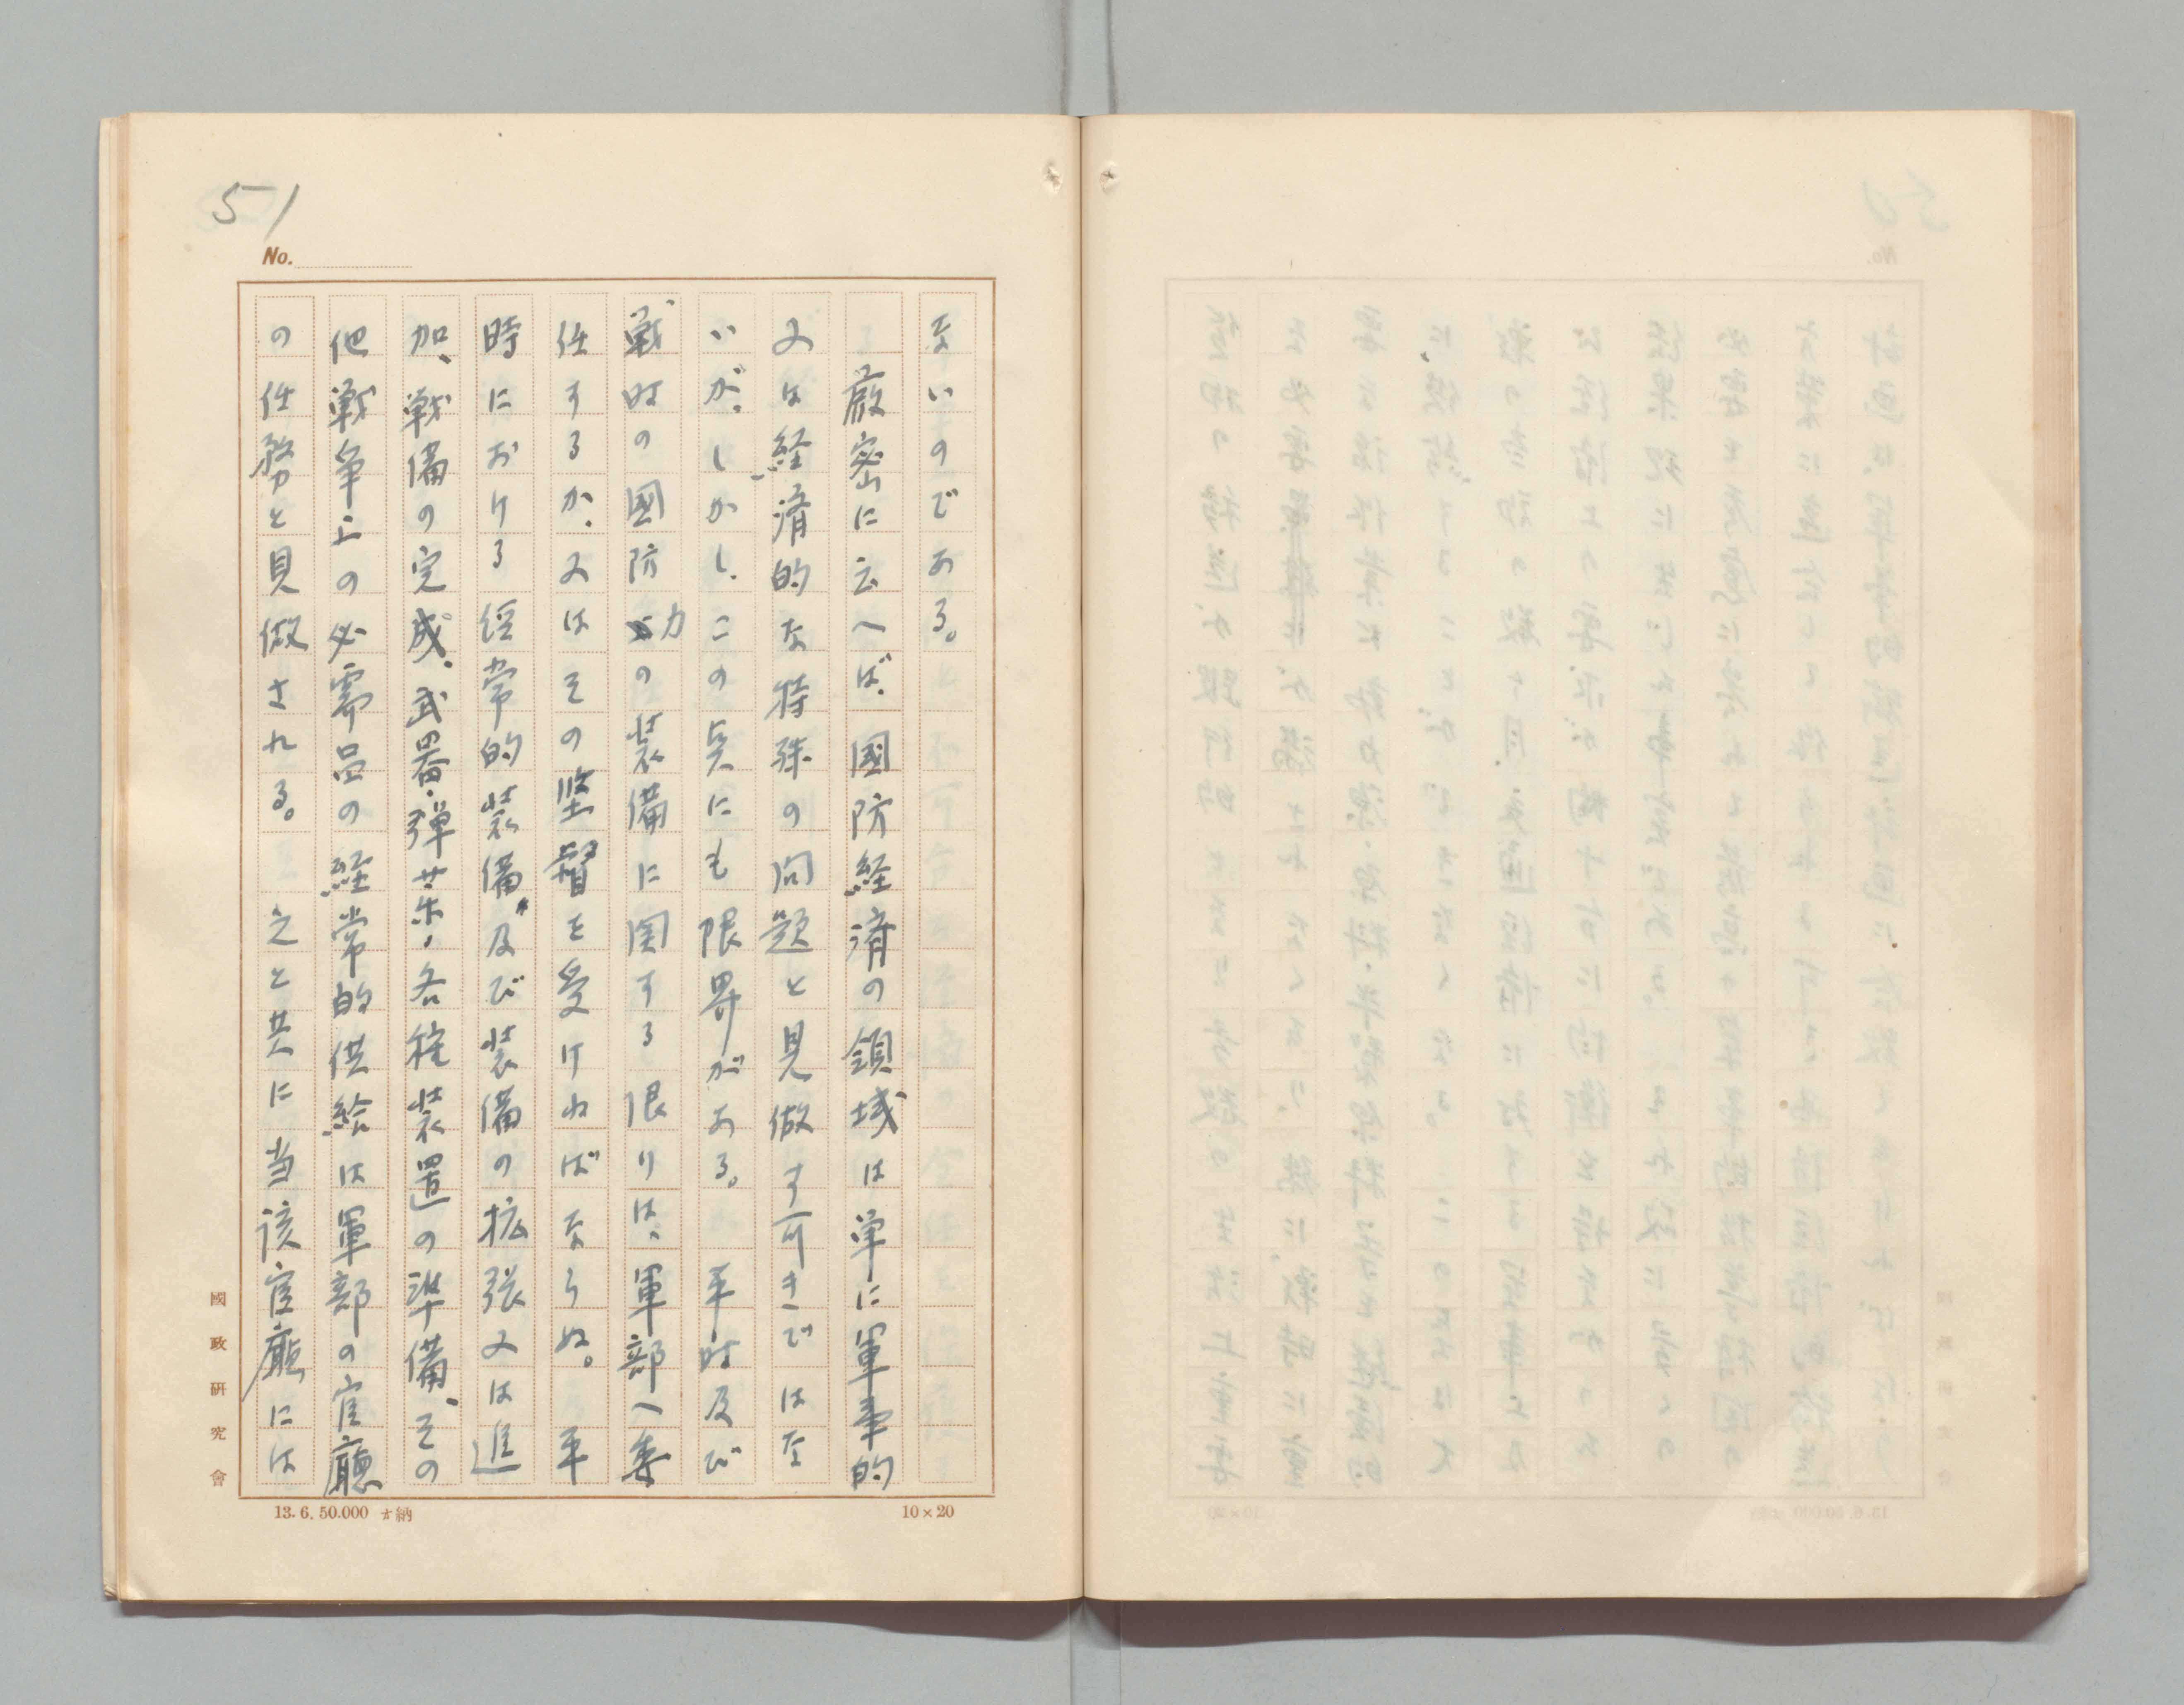 51
No.
ないのである。
厳密に云へば、國防経済の領域は単に軍事的
又は経済的な特殊の问題と見做す可きではな
いが、しかし、この点にも限界がある。平時及び
戦时の國防力の装備に関する限りは、軍部へ委
任するか、又はその監督を受けねばならぬ。平
時における経常的装備及び装備の拡張又は進
加、戦備の完成、武器・弾薬・各種装置の準備、その
他戦争上の必需品の経常的供給は軍部の官廳
の任務と見做される。之と共に当該官廳には
國政研究會
13.6.50.000 納
10×20